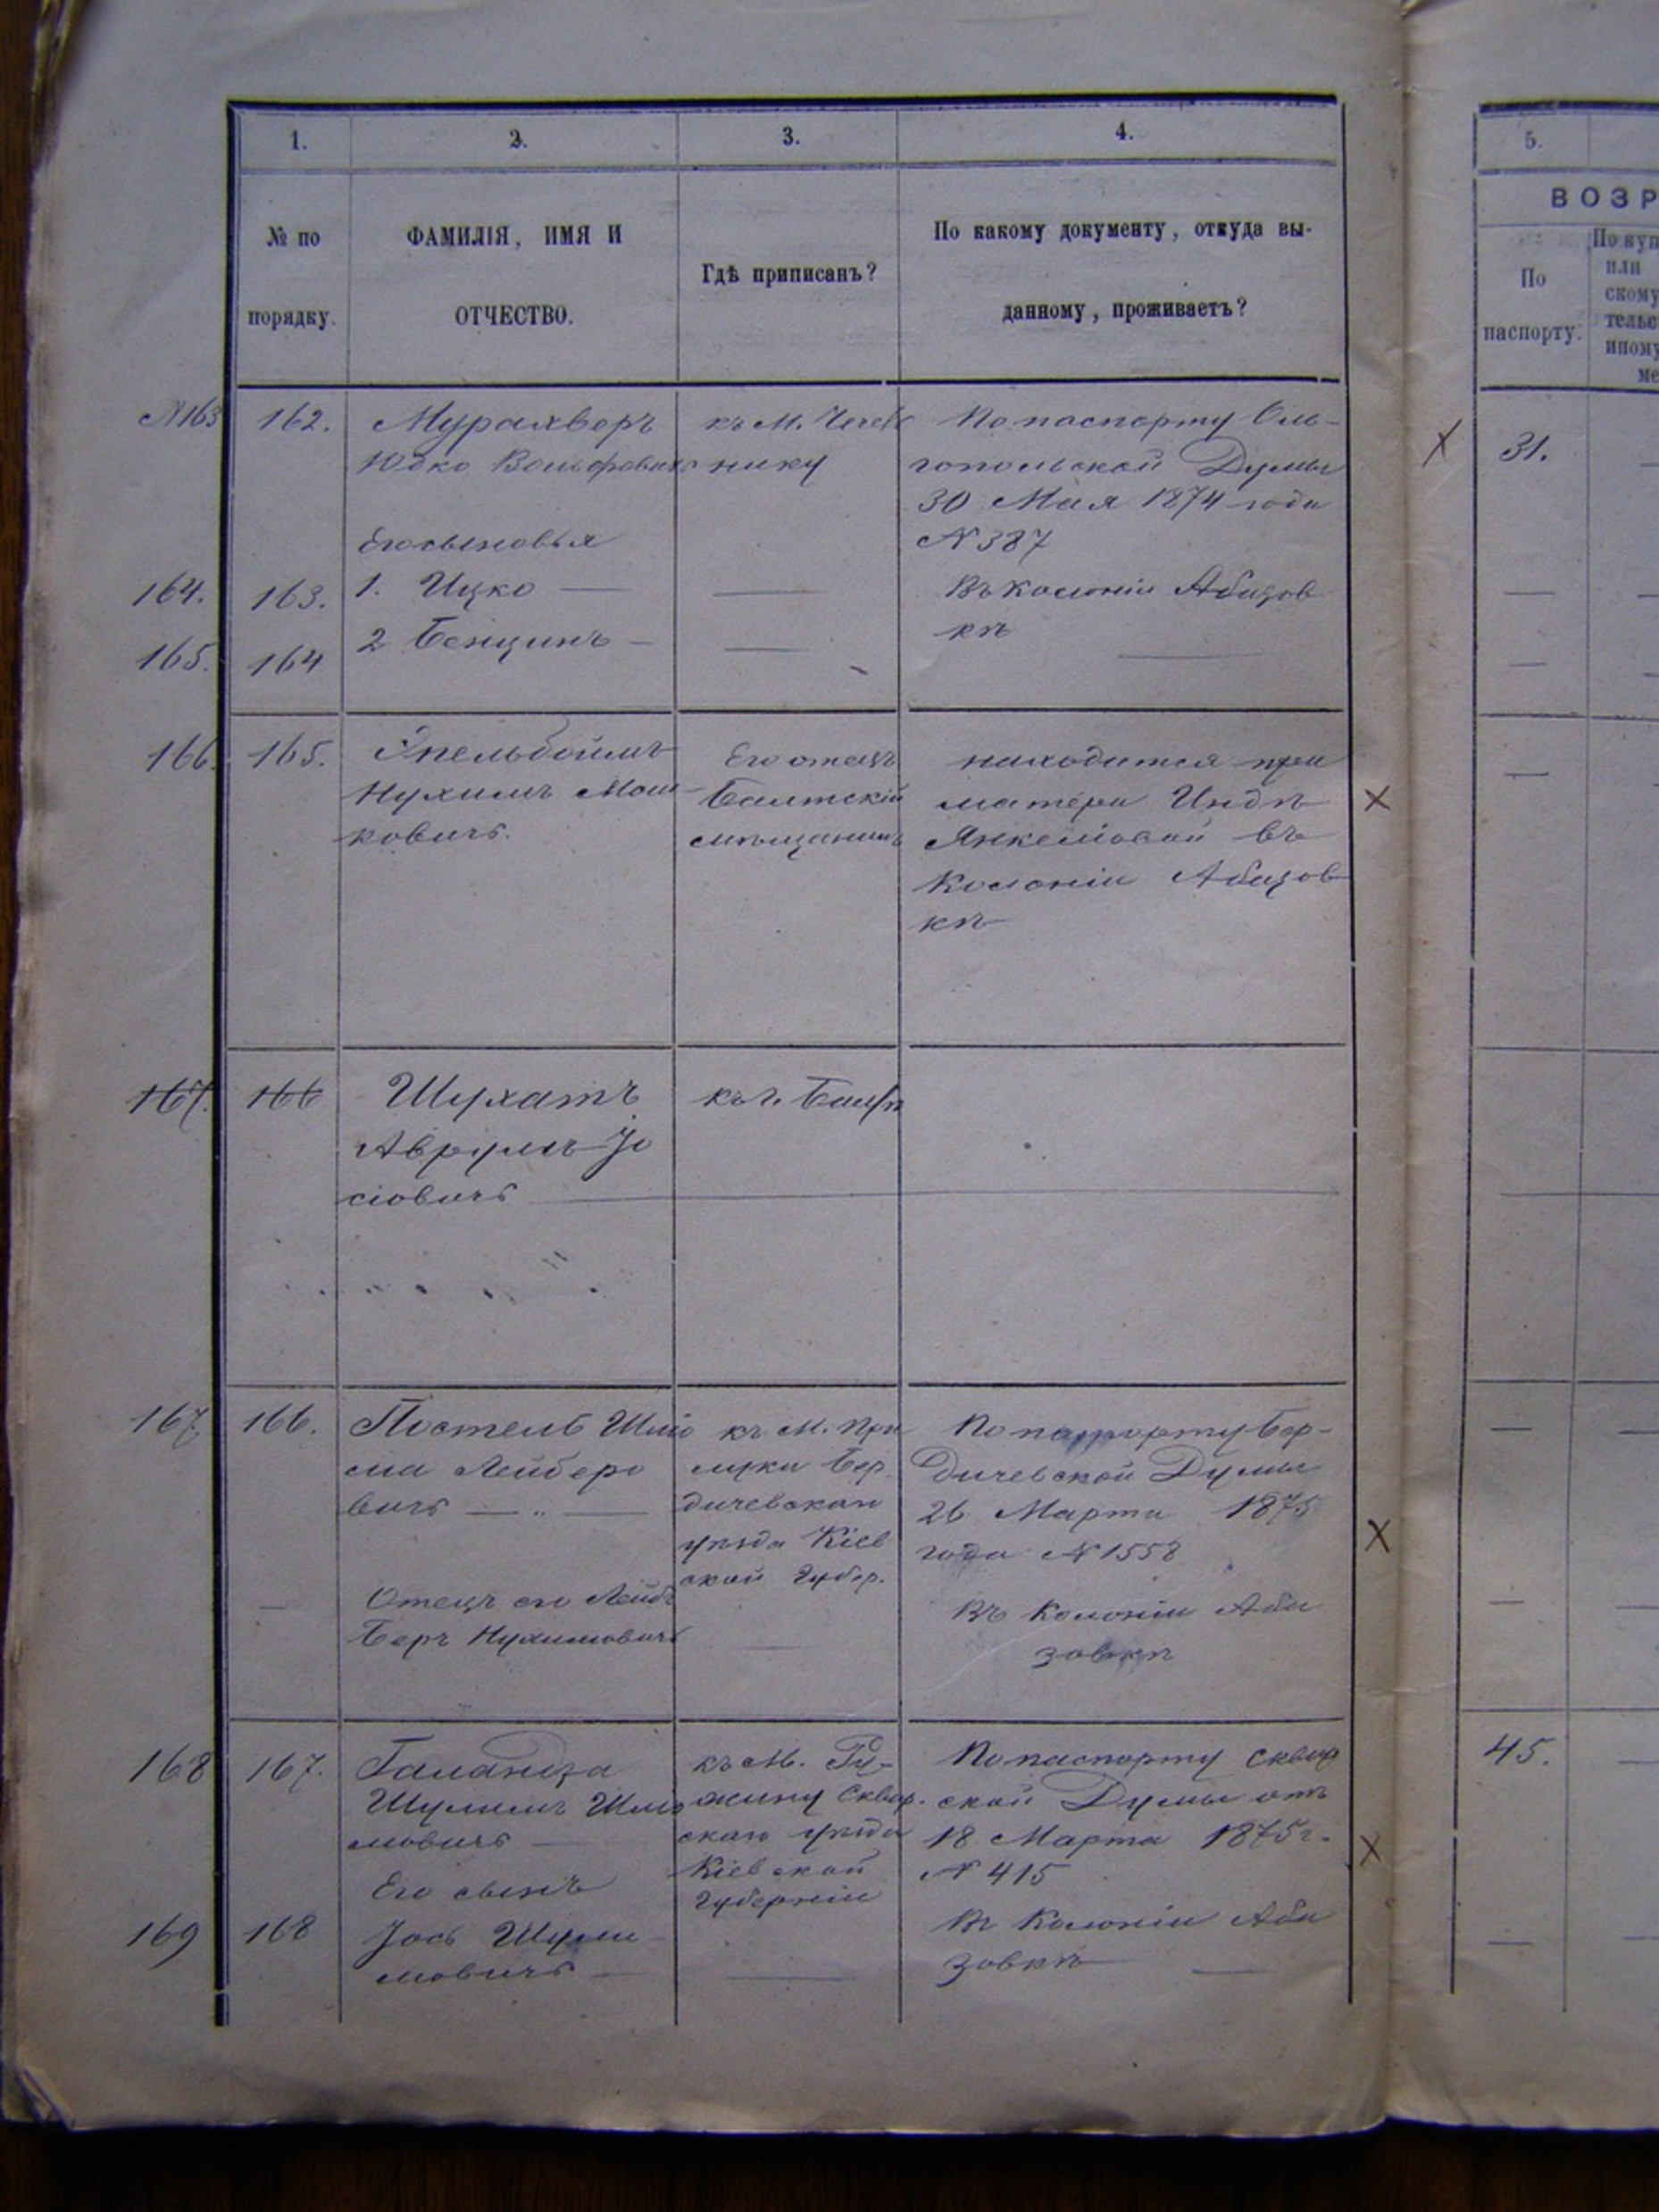 1.
2.
3.
4.
5.
№ по
порядку.
ФАМИЛІЯ, ИМЯ И
ОТЧЕСТВО.
Гдѣ приписанъ?
По какому документу, откуда вы-
данному, проживаетъ?
ВОЗР
По
паспорту.
По куп
или
скому
тельс
иному
ме
№163
162.
Мурахверъ
Юдко Вольфовичъ
къ М. Чечель
нику
По паспорту Оль-
гопольской Думы
30 Мая 1874 года
№ 387
31.
Его сыновья
164.
163.
1. Ицко —
Въ Колоніи Абазов
кѣ
165.
164
2 Бенцинъ —
166.
165.
Эпельбоймъ
Нухимъ Мош-
ковичъ.
Его отецъ
Балтскій
мѣщанинъ
находится при
матери Индѣ
Янкелiовой въ
Колоніи Абазов
кѣ
167.
166
Шухатъ
Аврумъ Іо
сіовичъ
къ г. Балтѣ
167
166.
Постель Шлiо
ма Лейберо
вичъ — „ —
къ М. При
луки Бер
дичевскаго
уѣзда Кіев
ской Губер.
По паспорту Бер-
дичевской Думы
26 Марта 1875
года № 1558
Отецъ его Лейбъ
Беръ Нухимовичъ
Въ Колоніи Аба
зовкѣ
168
167.
Галандза
Шулимъ Шлiо
мовичъ —
къ М. Ру-
жину Сквир.
скаго уѣзда
Кіевской
Губерніи
По паспорту Сквир
ской Думы отъ
18 Марта 1875 г.
№ 415
45.
Его сынъ
169
168
Іось Шули-
мовичъ —
Въ Колоніи Аба
зовкѣ —